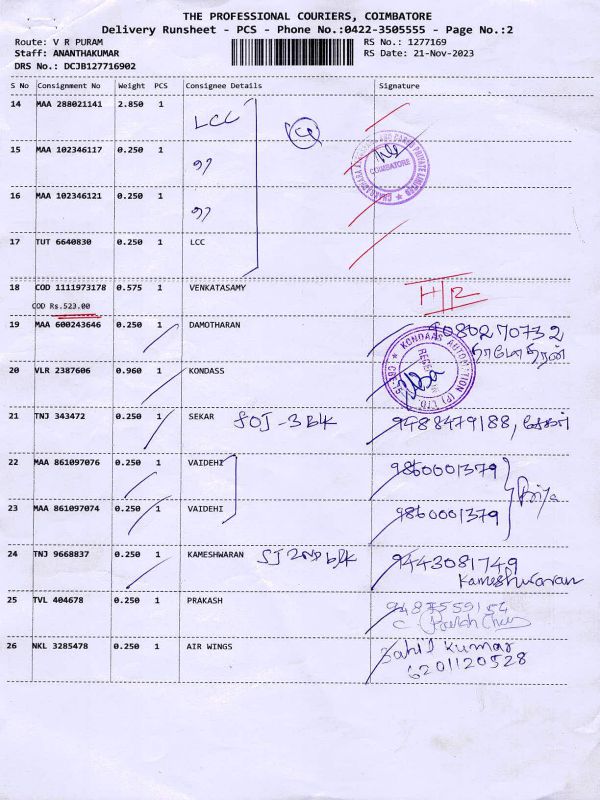 THE PROFESSIONAL COURIERS, COIMBATORE
Delivery Runsheet - PCS - Phone No.:0422-3505555 - Page No.:2
Route: V R PURAM RS No.: 1277169
Staff: ANANTHAKUMAR RS Date: 21-Nov-2023
DRS No.: DCJB127716902
S No Consignment No Weight PCS Consignee Details Signature
14 MAA 288021141 2.850 1 LCC
15 MAA 102346117 0.250 1 COIMBATORE
16 MAA 102346121 0.250 1
17 TUT 6640830 0.250 1 LCC
18 COD 1111973178 0.575 1 VENKATASAMY H/R
COD Rs.523.00
19 MAA 600243646 0.250 1 DAMOTHARAN 9080270732
தாமோதரன்
20 VLR 2387606 0.960 1 KONDASS KONDASS AUTOMATION (P) LTD
21 TNJ 343472 0.250 1 SEKAR SOJ-3 blk 9488479188, சேகர்
22 MAA 861097076 0.250 1 VAIDEHI 9860001379
Priya
23 MAA 861097074 0.250 1 VAIDEHI 9860001379
24 TNJ 9668837 0.250 1 KAMESHWARAN SJ 2nd blk 9443081749
Kameshwaran
25 TVL 404678 0.250 1 PRAKASH 9487559154
26 NKL 3285478 0.250 1 AIR WINGS Sahil Kumar
6201120528